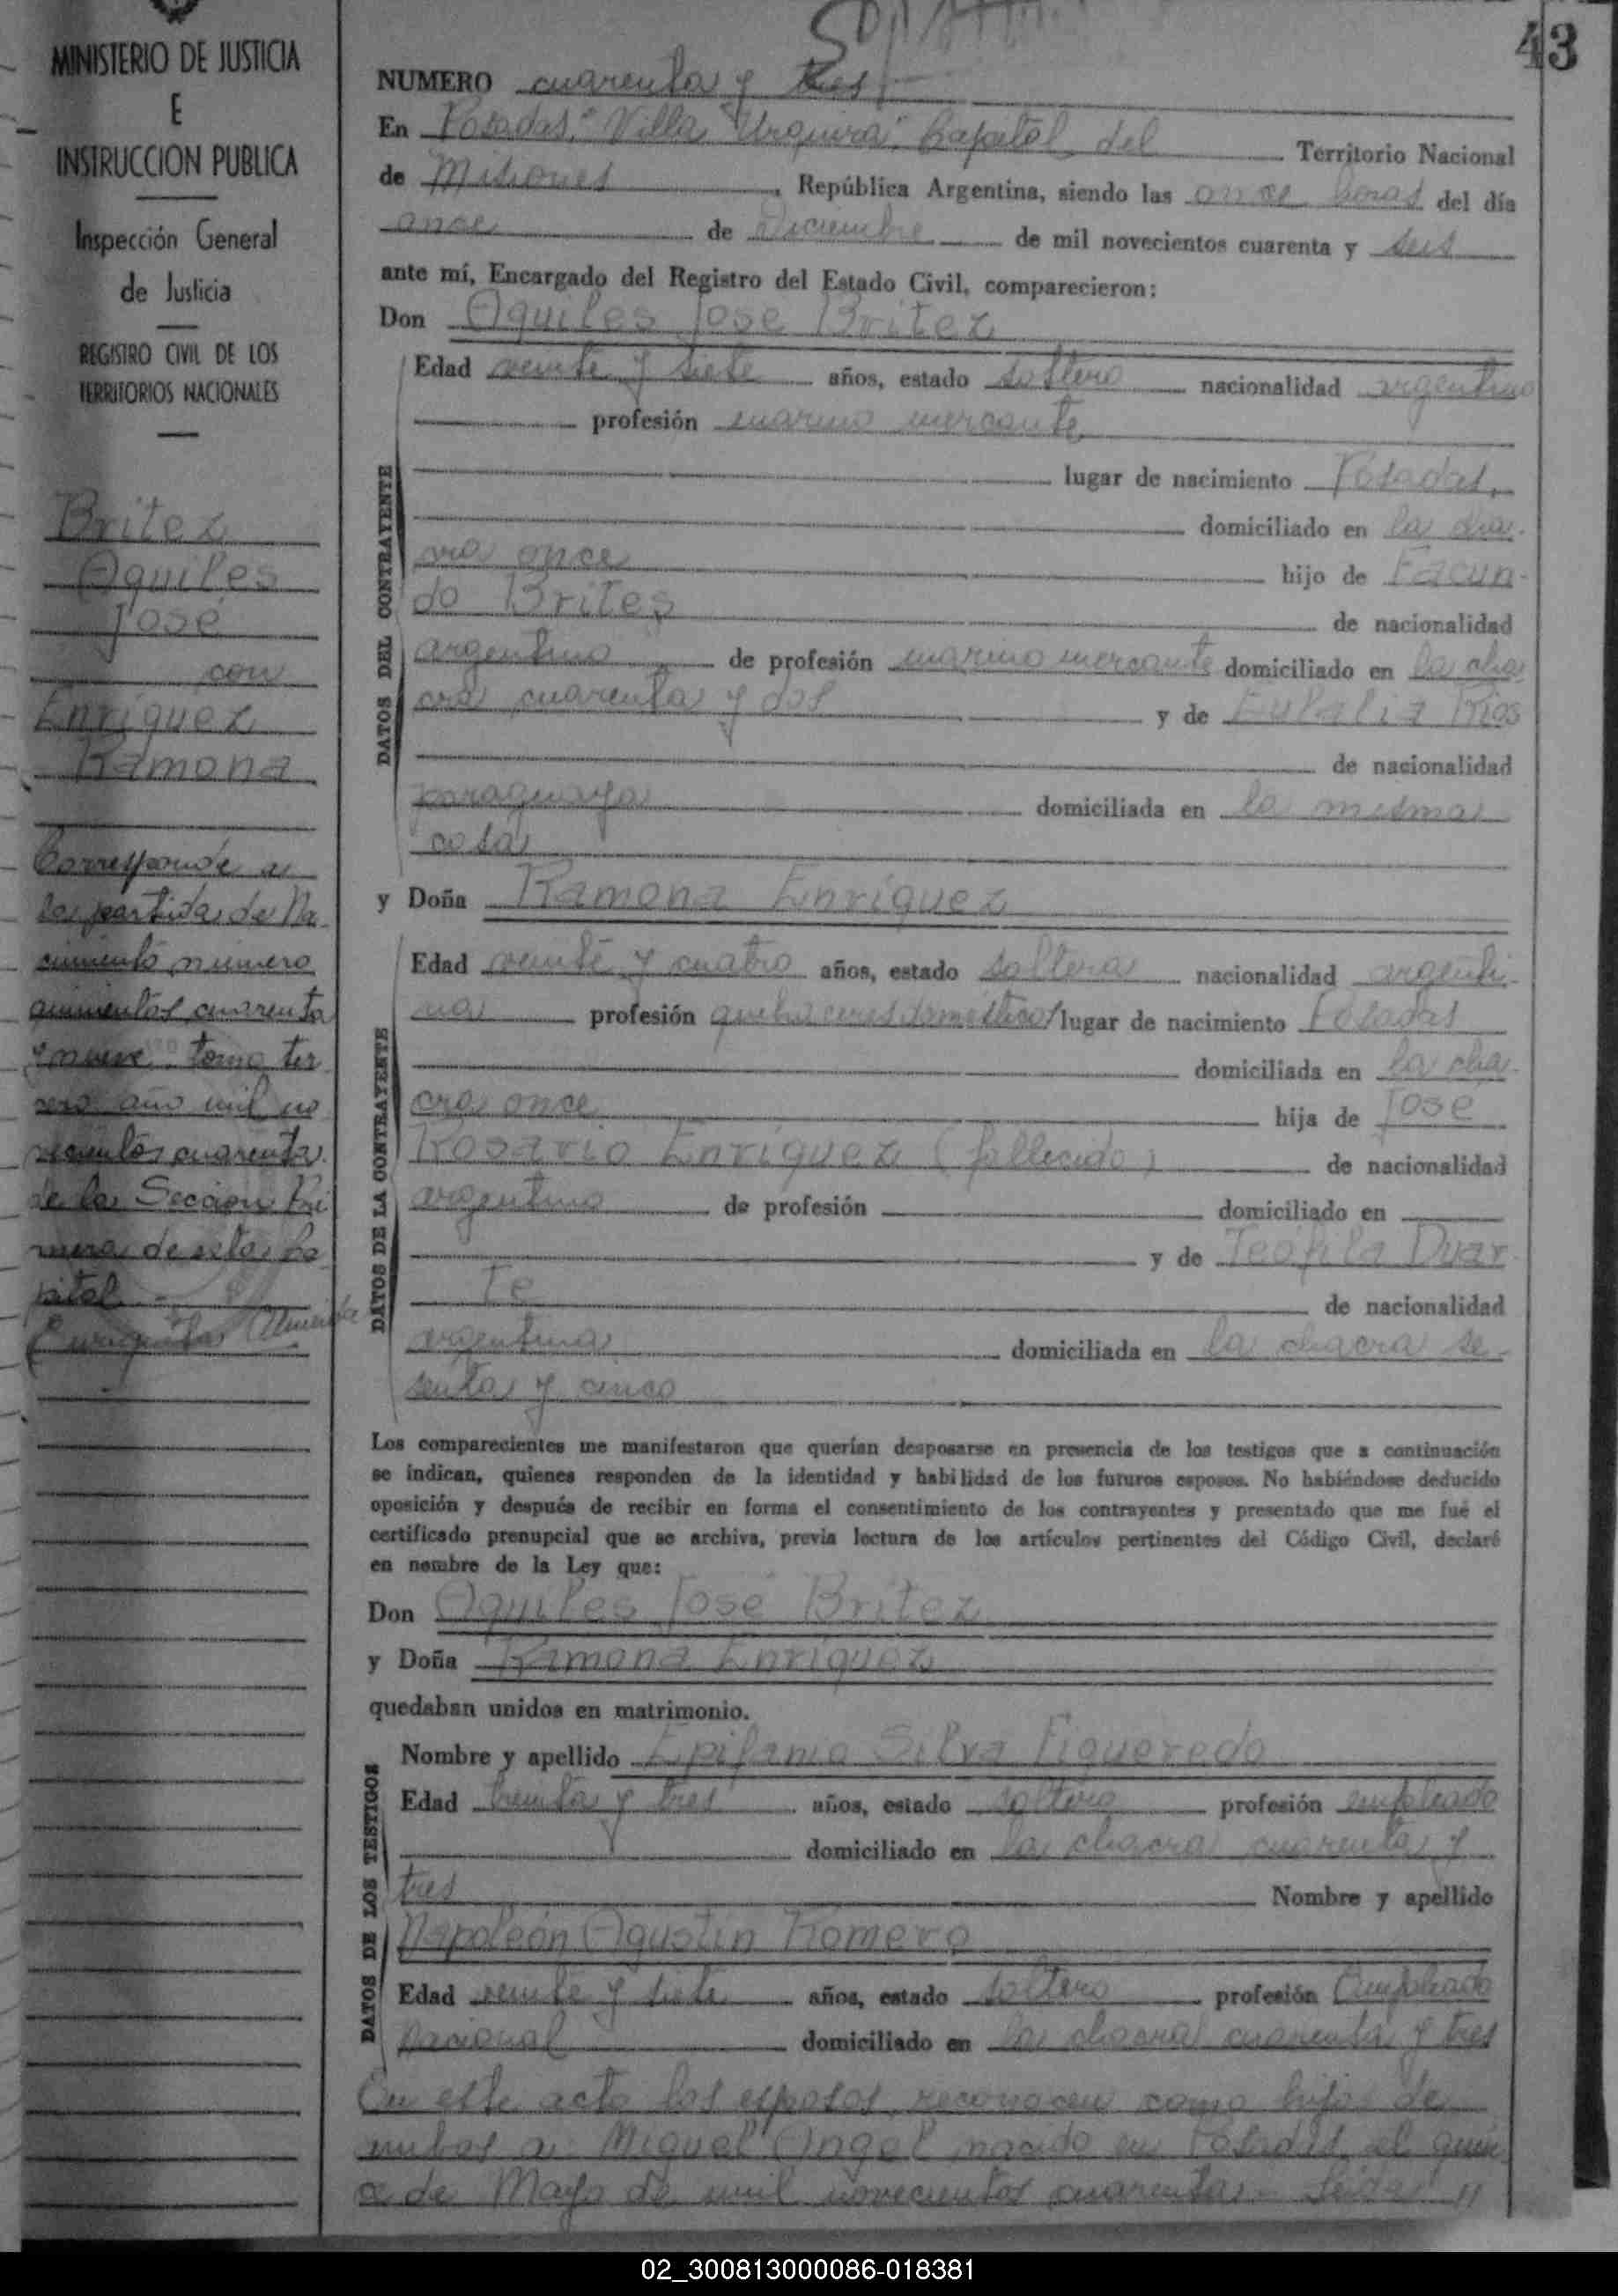 43
MINISTERIO DE JUSTICIA
E
INSTRUCCION PUBLICA
Inspección General
de Justicia
REGISTRO CIVIL DE LOS
TERRITORIOS NACIONALES
Britez
Aquiles
José
con
Enriquez
Ramona
Corresponde a
la partida de Na-
cimiento número
quinientos cuarenta
y nueve tomo ter
cero año mil no
vecientos cuarenta
de la Seccion Pri
mera de esta Ca
pital
NUMERO cuarenta y tres
En Posadas "Villa Urquiza" Capital del Territorio Nacional
de Misiones, República Argentina, siendo las once horas del día
once de Diciembre de mil novecientos cuarenta y seis
ante mí, Encargado del Registro del Estado Civil, comparecieron:
Don Aquiles José Britez
DATOS DEL CONTRAYENTE
Edad veinte y siete años, estado soltero nacionalidad argentino
profesión marino mercante
lugar de nacimiento Posadas,
domiciliado en la cha-
cra once hijo de Facun-
do Brites de nacionalidad
argentino de profesión marino mercante domiciliado en la cha
cra cuarenta y dos y de Eulalia Rios
de nacionalidad
paraguaya domiciliada en la misma
casa
y Doña Ramona Enriquez
DATOS DE LA CONTRAYENTE
Edad veinte y cuatro años, estado soltera nacionalidad argenti-
na profesión quehaceres domesticos lugar de nacimiento Posadas
domiciliada en la cha-
cra once hija de José
Rosario Enriquez (fallecido) de nacionalidad
argentino de profesión domiciliado en
y de Teófila Duar-
te de nacionalidad
argentina domiciliada en la chacra se-
senta y cinco
Los comparecientes me manifestaron que querían desposarse en presencia de los testigos que a continuación
se indican, quienes responden de la identidad y habilidad de los futuros esposos. No habiéndose deducido
oposición y después de recibir en forma el consentimiento de los contrayentes y presentado que me fué el
certificado prenupcial que se archiva, previa lectura de los artículos pertinentes del Código Civil, declaré
en nombre de la Ley que:
Don Aquiles José Britez
y Doña Ramona Enriquez
quedaban unidos en matrimonio.
DATOS DE LOS TESTIGOS
Nombre y apellido Epifanio Silva Figueredo
Edad treinta y tres años, estado soltero profesión empleado
domiciliado en la chacra cuarenta y
tres Nombre y apellido
Napoleón Agustin Romero
Edad veinte y siete años, estado soltero profesión Empleado
nacional domiciliado en la chacra cuarenta y tres
En este acto los esposos reconocen como hijo de
ambos a Miguel Angel nacido en Posadas el quin
ce de Mayo de mil novecientos cuarenta.- Leída "
02_300813000086-018381